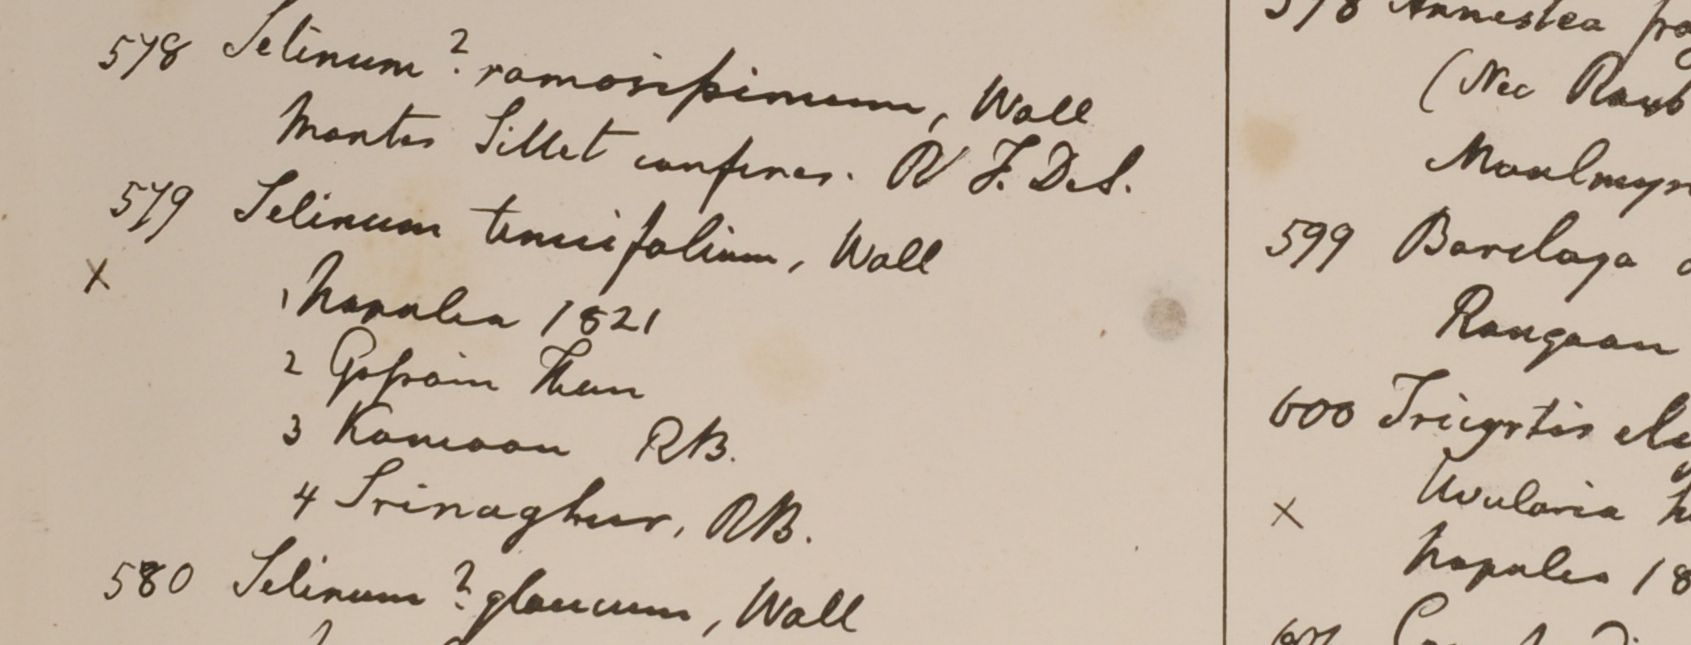 578 Selinum? ramosissimum, Wall
Montes Sillet confines. W F. De S.
579 Selinum tenuifolium, Wall
x
1 Napalia 1821
2 Gossain Than
3 Kamaon RB.
4 Srinaghur, RB.
580 Selinum? glaucum, Wall
598 Anneslea
(Nec Roxb
Moalmyn
599 Barclaya
Rangoon
600 Tricyrtis ele
Uvularia
x
Napalia 18